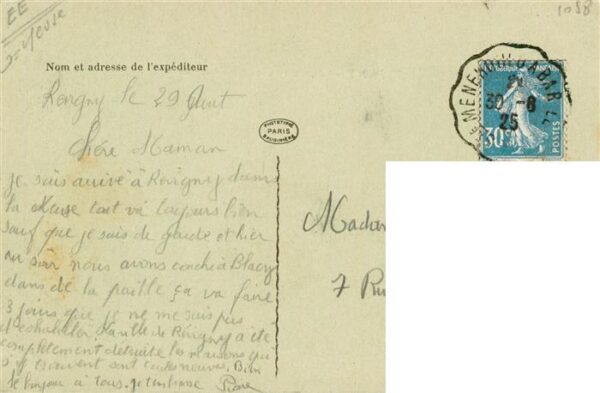 EE
Meuse
1058
Nom et adresse de l'expéditeur
Revigny le 29 Aout
Chère Maman
je suis arrivé à Revigny dans
la Meuse tout va toujours bien
sauf que je suis de garde et hier
au soir nous avons couché à Blacy
dans de la paille ça va faire
3 jours que je ne me suis pas
deshabiller. La ville de Revigny a été
completement detruite les maisons qui
s'y trouvent sont toutes neuves. Bien
le bonjour à tous. je t'embrasse Pierre
PHOTOTYPIE
PARIS
MENEHOULD A BAR
30 -8
25
30
POSTES
Madam
7 Ru